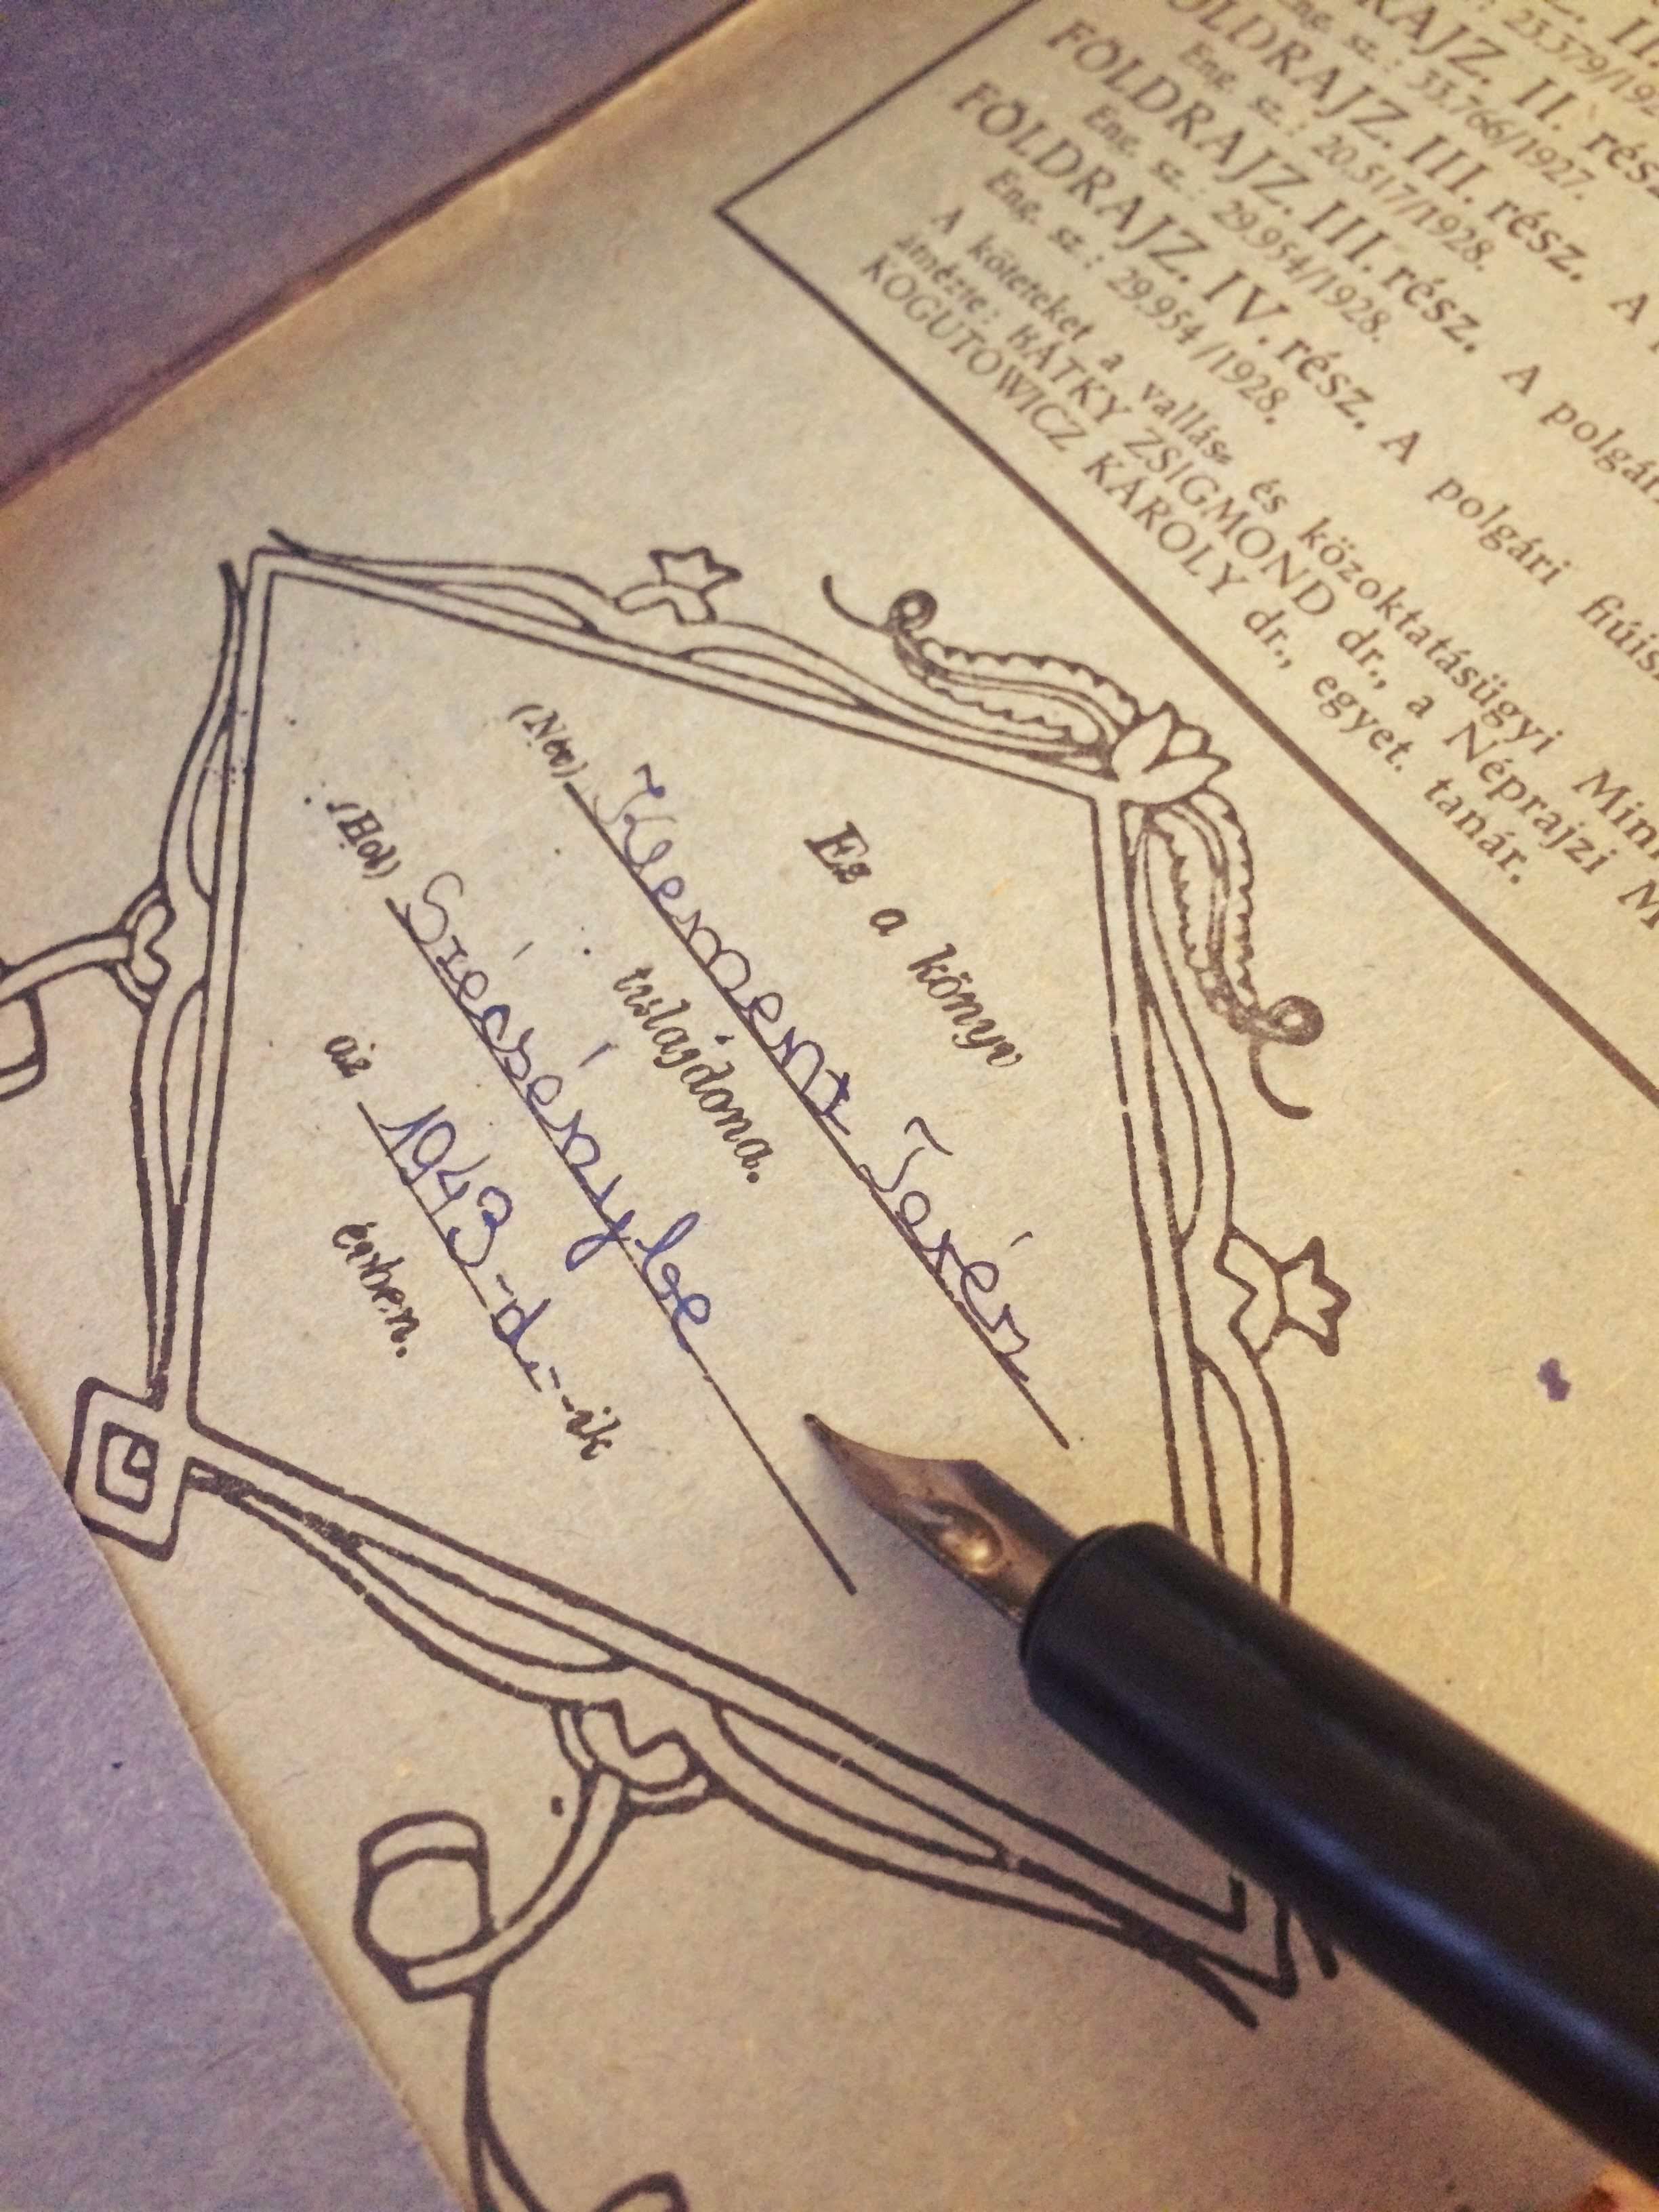 II.
Eng. sz.: 23.379/192
RAJZ. II. rész
Eng. sz.: 33.766/1927.
FÖLDRAJZ. III. rész. A
Eng. sz.: 20.517/1928.
FÖLDRAJZ. III. rész. A polgári
Eng. sz.: 29.954/1928.
FÖLDRAJZ. IV. rész. A polgári fiúis
Eng. sz.: 29.954/1928.
A köteteket a vallás- és közoktatásügyi Min
átnézte: BÁTKY ZSIGMOND dr., a Néprajzi M
KOGUTOWICZ KÁROLY dr., egyet. tanár.
Ez a könyv
(Név) Klemenz Teréz
tulajdona.
(Hol) Szécsénybe
az 1943-di-ik
évben.